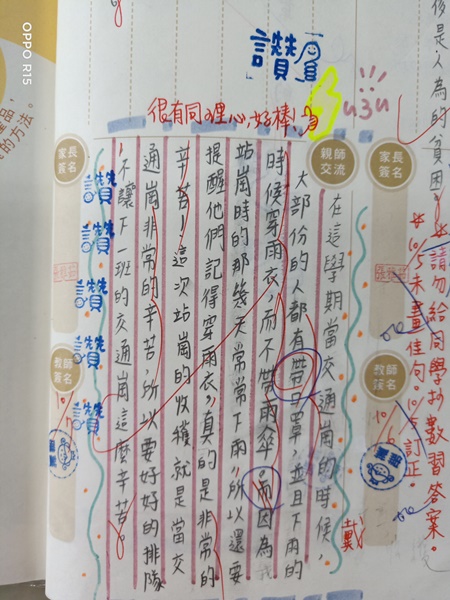 後是人為的貧困。
請勿給同學抄數習答案。
※10/5未畫佳句。10/5訂正。
家長
簽名
教師
簽名
讚
很有同理心，好棒！
親師
交流
在這學期當交通崗的時候，
大部份的人都有帶口罩，並且下雨的
戴
時候穿雨衣，而不帶雨傘。而因為
站崗時的那幾天常常下雨，所以還要
提醒他們記得穿雨衣，真的是非常的
辛苦！這次站崗的收穫就是當交
通崗非常的辛苦，所以要好好的排隊
不讓下一班的交通崗這麼辛苦。
讚
讚
讚
讚
家長
簽名
教師
簽名
的方法。
OPPO R15